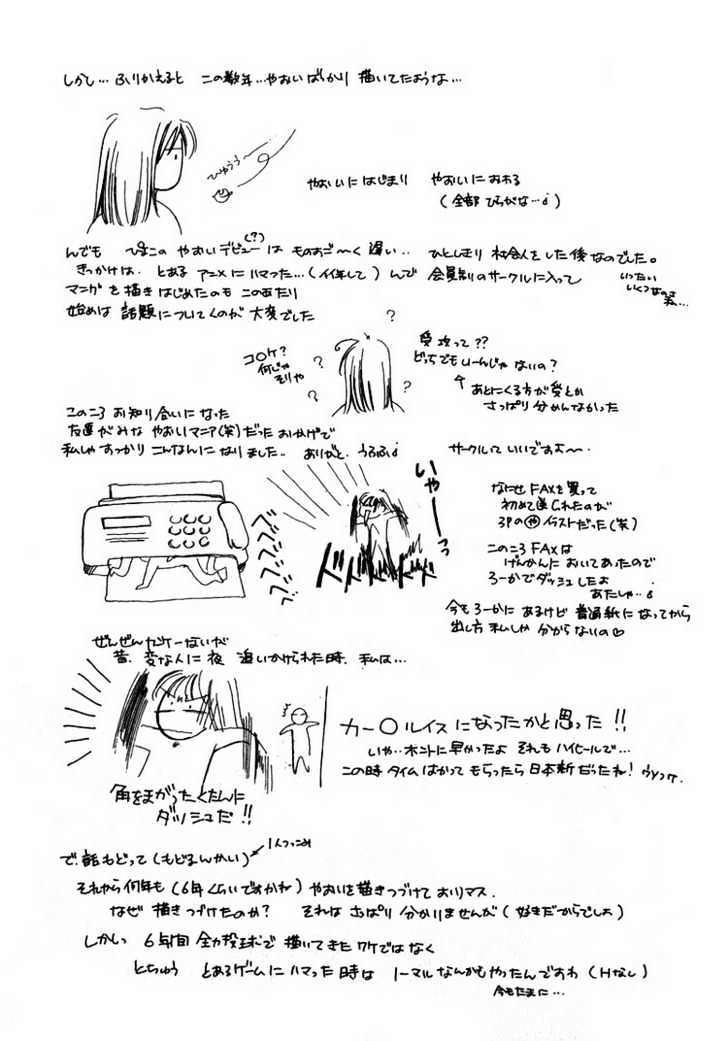 しかし… ふりかえると この数年…やおいばっかり 描いてたような…
ひゅうぅ〜
やおいにはじまり やおいにおわる
(全部 ひらがな…♪)
んでも ぴまこの やおいデビュー(?)は ものすご〜く 遅い.. ひとしきり 社会人をした後なのでした。
きっかけは. とある アニメに ハマった…(イイ年して) んで 会員制のサークルに入って
いったい
いくつなのさ
私…
マンガ を 描き はじめたのも このあたり
始めは 話題についてくのが 大変でした
?
?
?
?
コ○ケ?
何じゃ
そりゃ
受攻って??
どっちでも いーんじゃ ないの?
↑ あとにくる方が受とか
さっぱり 分かんなかった
このころ お知り合いに なった
友達がみな やおいマニア(笑)だった おかげで
私しゃ すっかり こんなんに なりました.. ありがと. うるうる♪
サークルって いいですよ〜.
いやーっ
ドドドドドド
なにせ FAXを買って
初めて送られたのが
3Pの㋳イラストだった(笑)
このころ FAXは
げんかんに おいてあったので
ろーかで ダッシュしたよ
あたしゃ..♪
今も ろーかに あるけど 普通紙に なってから
出し方 私しか 分からないの♡
ぜんぜん カンケーないが
昔. 変な人に 夜 追いかけられた時. 私は…
角をまがったとたんに
ダッシュだ!!
カー○ルイス になったかと思った!!
いや.. ホントに 早かったよ それも ハイヒールで…
この時 タイム はかって もらったら 日本新だったね! ウソつけ.
で. 話もどって (もどるんかい) ← 1人つっこみ
それから 何年も (6年くらいですかね) やおいを描きつづけて おりマス.
なぜ 描きつづけたのか? それは さっぱり 分かりませんが (好きだからでしょ)
しかしっ 6年間 全力投球で 描いてきた ワケではなく
とちゅう とあるゲームに ハマった時は ノーマル なんかも やったんですわ (Hなし)
今もたまに…